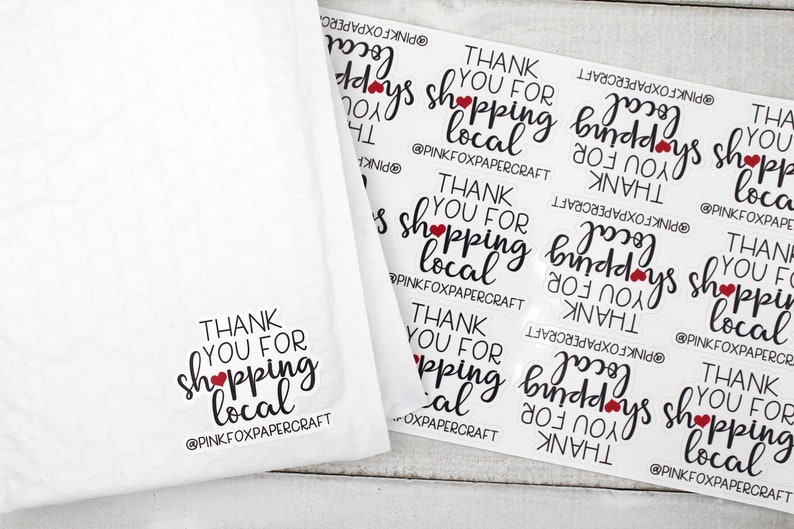 THANK
YOU FOR
shopping
local
@PINKFOXPAPERCRAFT
THANK
YOU FOR
shopping
local
@PINKFOXPAPERCRAFT
THANK
YOU FOR
shopping
local
@PINKFOXPAPERCRAFT
THANK
YOU FOR
shopping
local
@PINKFOXPAPERCRAFT
THANK
YOU FOR
shopping
local
THANK
YOU FOR
shopping
local
@PINKFOXPAPERCRAFT
THANK
YOU FOR
shopping
local
@PINKFOXPAPERCRAFT
THANK
YOU FOR
shopping
local
@PINKFOXPAPERCRAFT
THANK
YOU FOR
shopping
local
THANK
YOU FOR
shopping
local
@PINKFOXPAPERCRAFT
THANK
YOU FOR
shopping
local
@PINKFOXPAPERCRAFT